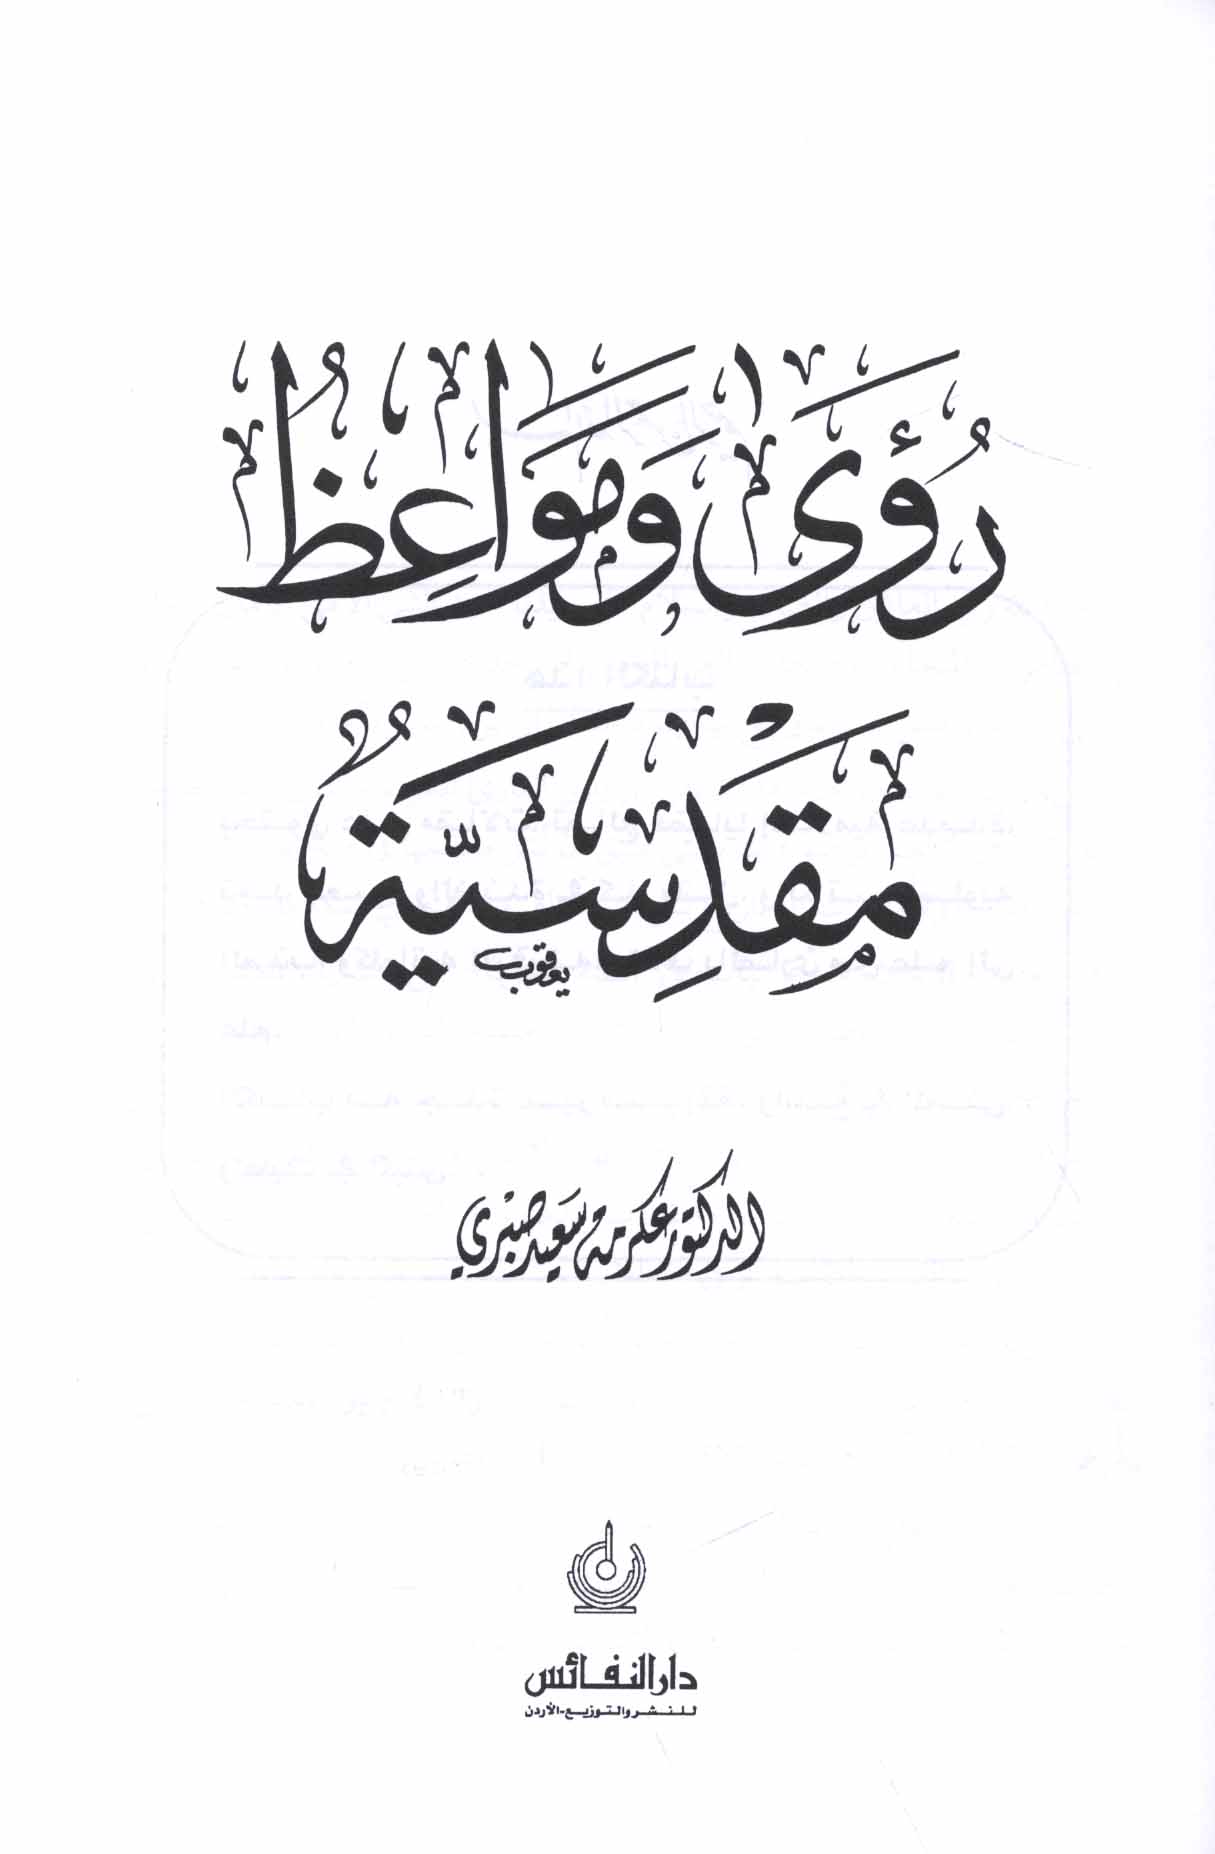 رُؤَى وَمَوَاعِظُ
مَقْدِسِيَّةٌ
يعقوب
الدكتور عكرمة سعيد صبري
دار النفائس
للنشر والتوزيع-الأردن